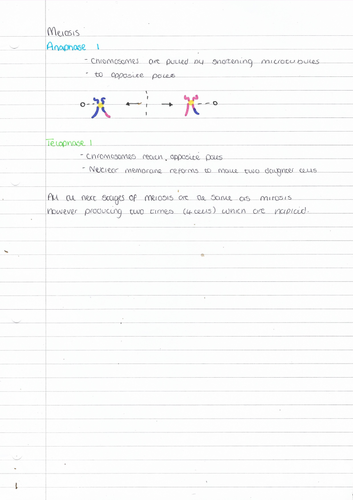 Meiosis
Anaphase 1
- Chromosomes are pulled by shortening microtubules
- to opposite poles
Telophase 1
- Chromosomes reach, opposite poles
- Nuclear membrane reforms to make two daughter cells
All the next stages of meiosis are the same as mitosis
however producing two times (4 cells) which are haploid.